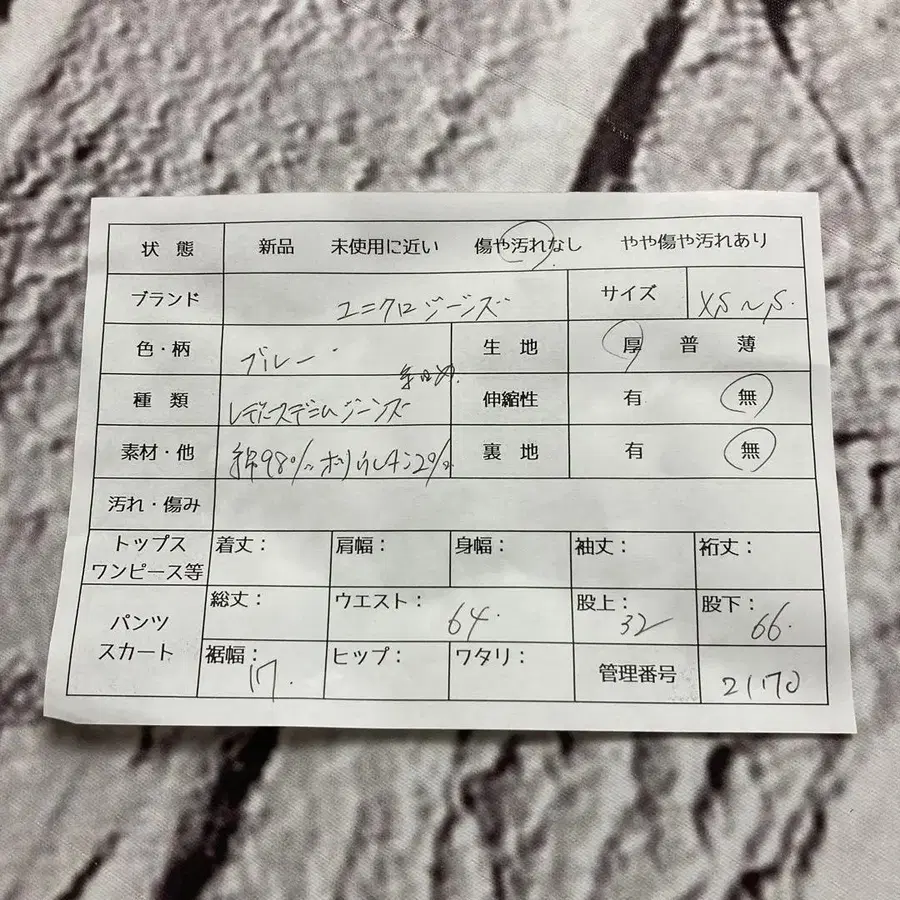 状態 新品 未使用に近い 傷や汚れなし やや傷や汚れあり
ブランド ユニクロジーンズ サイズ XS～S.
色・柄 ブルー 生地 厚 普 薄
種類 レディースデニムジーンズ 伸縮性 有 無
素材・他 綿98%ポリウレタン2% 裏地 有 無
汚れ・傷み
トップス
ワンピース等 着丈： 肩幅： 身幅： 袖丈： 裄丈：
パンツ
スカート 総丈： ウエスト： 64. 股上： 32 股下： 66.
裾幅： 17. ヒップ： ワタリ： 管理番号 21170